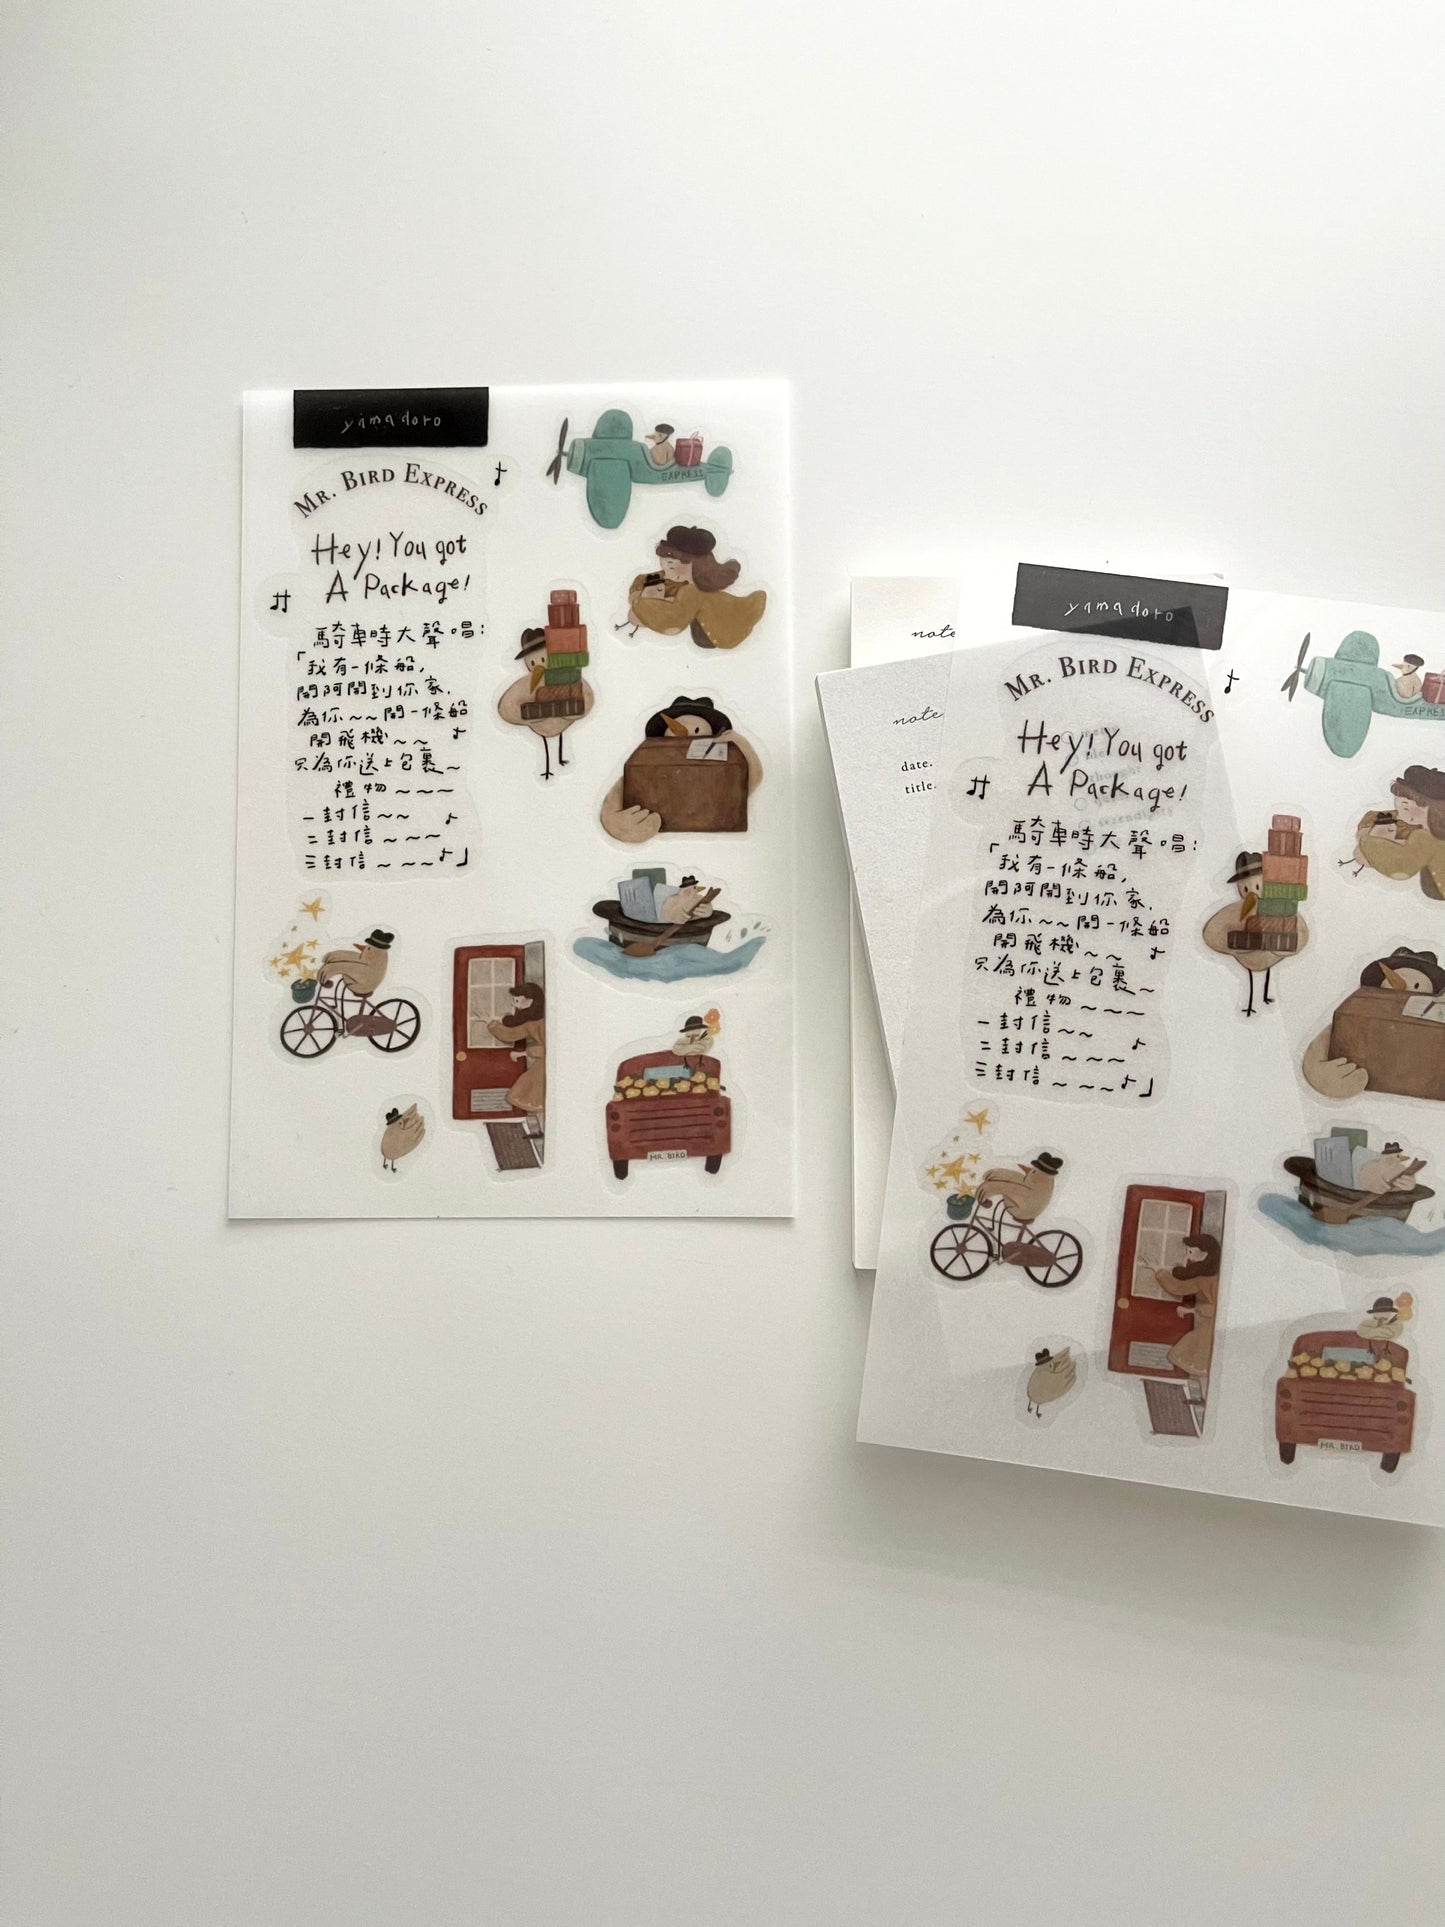 yamadoro
MR. BIRD EXPRESS
Hey! You got
A Package!
騎車時大聲唱：
「我有一條船，
開阿開到你家．
為你～～開一條船
開飛機～～
只為你送上包裹～
禮物～～～
一封信～～
二封信～～～
三封信～～～」
EXPRESS
MR. BIRD
note
note
date.
title.
yamadoro
MR. BIRD EXPRESS
Hey! You got
A Package!
serendipity
騎車時大聲唱：
「我有一條船，
開阿開到你家．
為你～～開一條船
開飛機～～
只為你送上包裹～
禮物～～～
一封信～～
二封信～～～
三封信～～～」
EXPRESS
MR. BIRD